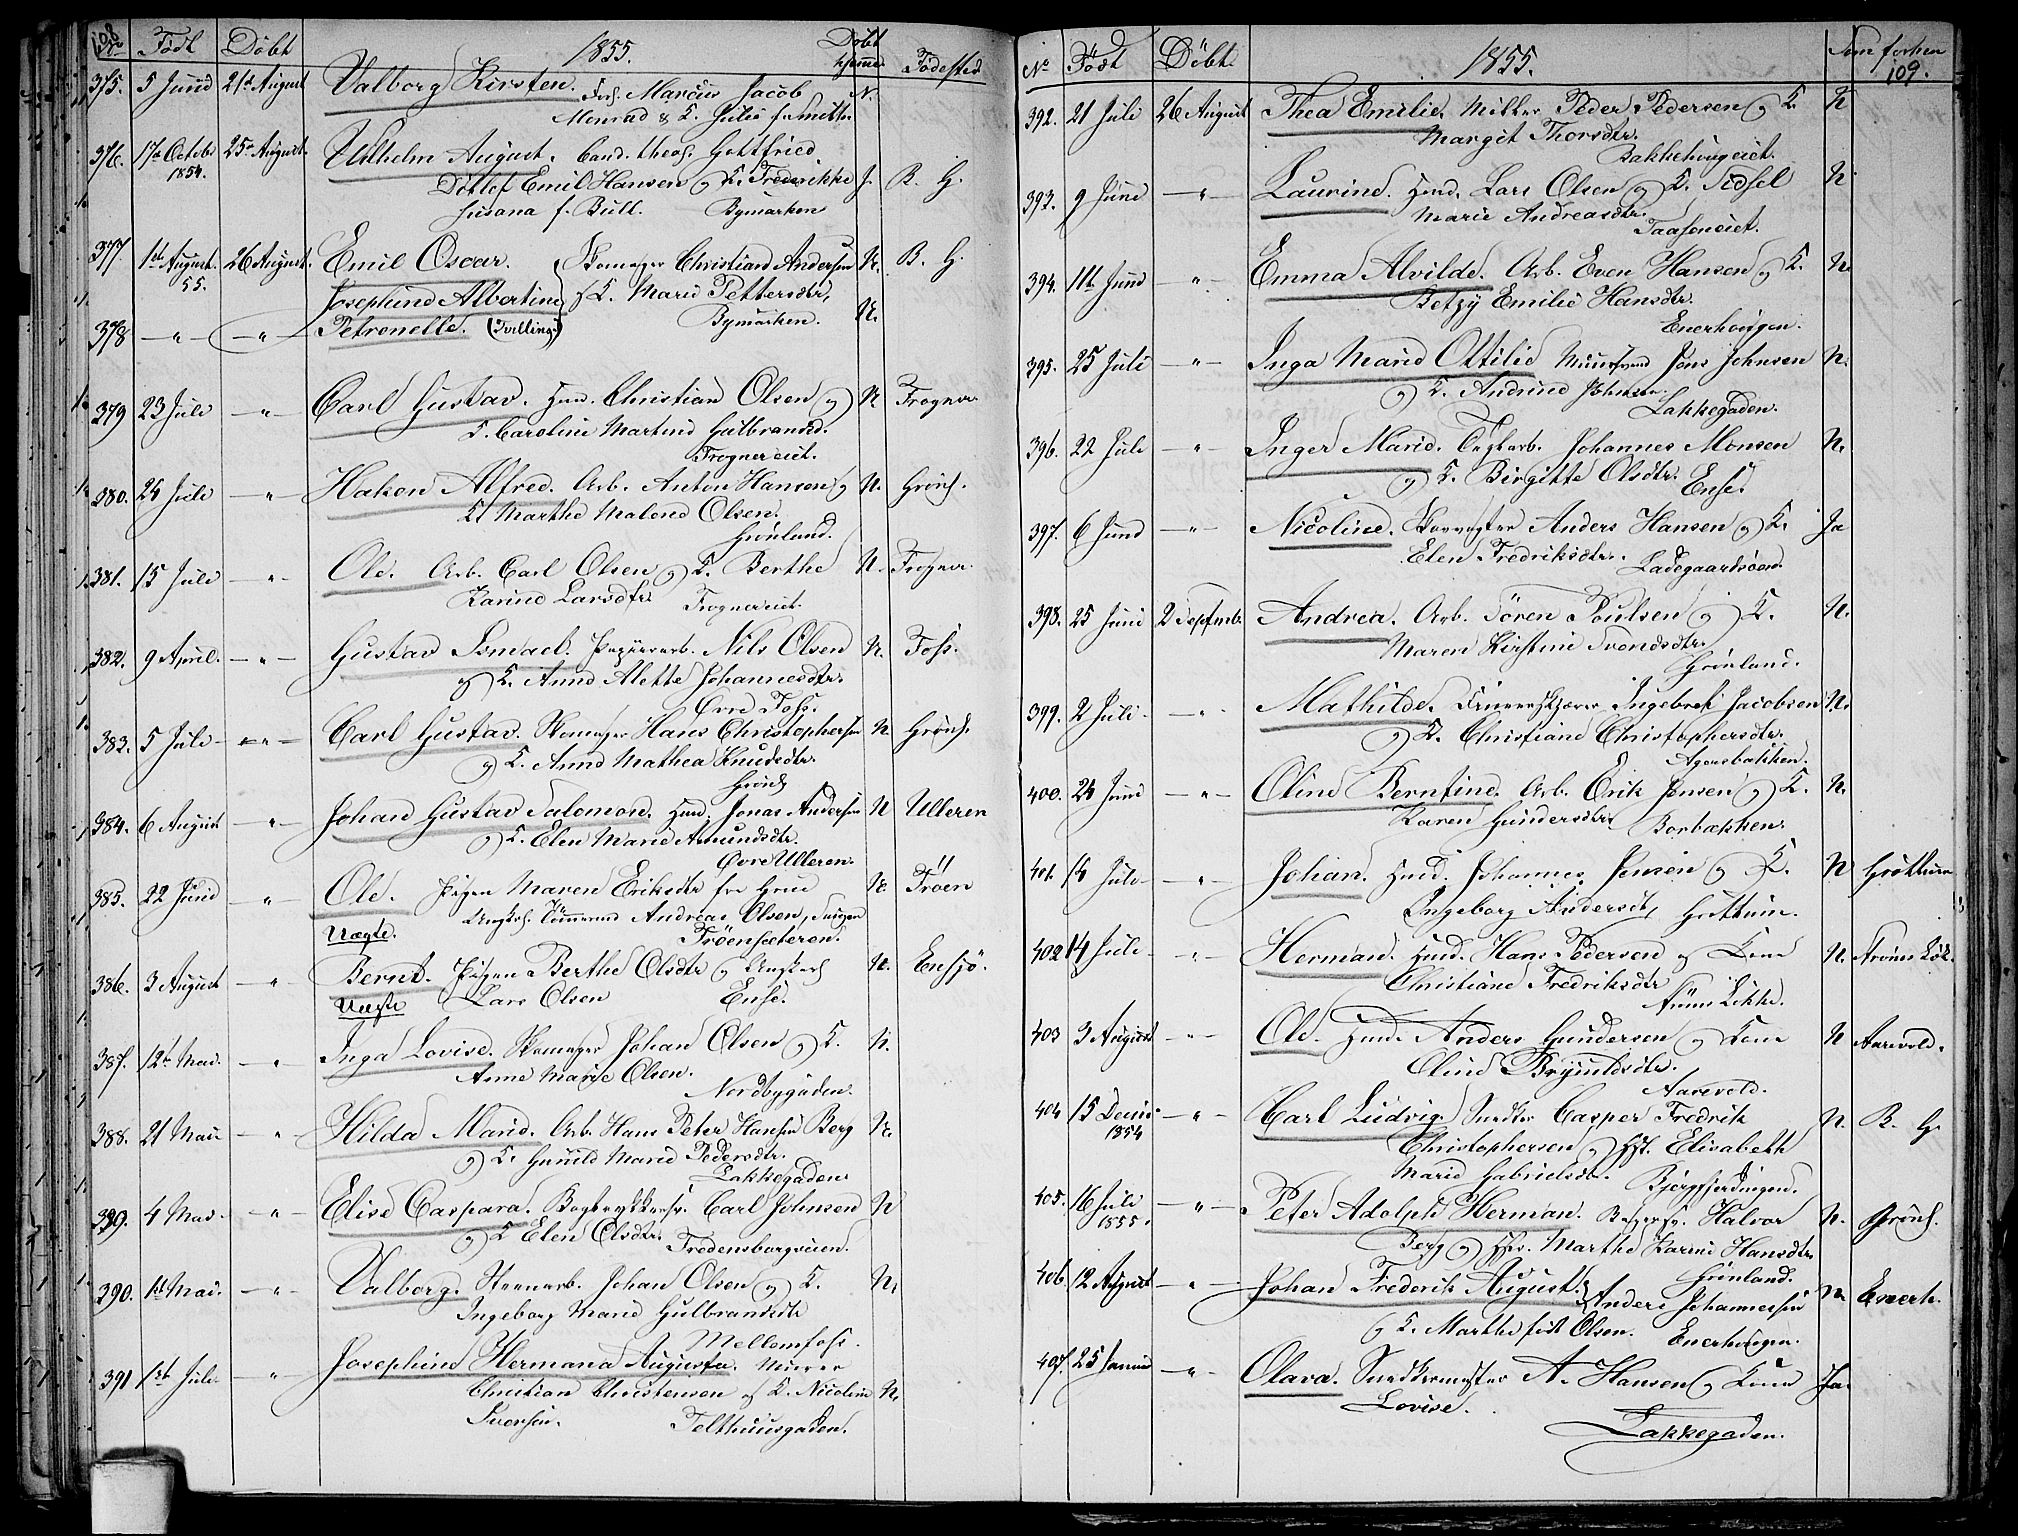 108
No Født Døbt 1855. Døbt hjemme Fødested
375. 5 Juni 21de August Valborg Kirsten. Marcus Jacob N.
Monrad & K. Julie f. Smith
376. 17de Octobr 25de August. Wilhelm August. Cand. theol. Gottfried
1854. Ditlef Emil Hansen og K. Frederikke J. B. G.
Susana f. Bull. Bymarken
377. 1ste August. 26 August. Emil Oscar. Skomager Christian Andersen N. B. G.
55. Josephine Albertine & K. Marie Pettersdtr,
378 — " — — " — Petronelle. (Tvillinger) Bymarken. N.
379 23 Juli — " — Carl Gustav. Huus. Christian Olsen og N Frogner
K. Caroline Martine Gulbrandsd.
Frognereiet.
380. 24 Juli — " — Hakon Alfred. Arb. Anton Hansen og N. Grønl.
K Marthe Malene Olsen.
Grønland.
381. 15 Juli — " — Ole. Arb. Carl Olsen og K. Berthe N. Frogner.
Karine Larsdtr. Frognereiet.
382. 9 April. — " — Gustav Ismael. Papiirarb. Nils Olsen N. Foss.
og K. Anne Alette Johannesdtr.
Øvre Foss.
383. 5 Juli — " — Carl Gustav. Skomager Hans Christophersen N Grønl.
og K. Anne Mathea Knudsdtr.
Grønl
384. 6 August — " — Johan Gustav Salomon. Huus. Jonas Andersen N Ulleren
og K. Elen Marie Amundsdtr.
Øvre Ulleren.
385. 22 Juni " Ole. Pigen Maren Eriksdtr fra Grue N. Tröen
Ungkarl Tømmermd Andreas Olsen,
Uægte. Tröensæteren.
386. 3 August — " Bernt. Pigen Berthe Olsdtr og Ungkarl N. Ensjö.
Uægte Lars Olsen Ense.
387. 12te Mai. — " Inga Lovise. Skomager Johan Olsen og K. N.
Anne Marie Olsen.
Nordbygaden.
388. 21 Mai — " Hilda Marie. Arb. Hans Peter Hansen Berg N.
og K. Gunild Marie Pedersdtr.
Lakkegaden.
389. 4 Mai. — " — Elise Caspara. Bogtrykkersv. Carl Johnsen N
og K Elen Olsdtr. Fredensborgveien.
390. 1ste Mai. — " — Valborg. Steenarb. Johan Olsen og K. N.
Ingeborg Marie Gulbrandsdtr
Mellomfoss.
391 1ste Juli. — " Josephine Hermana Augusta. Murer
Christian Christensen og K. Nicoline N.
Svensen. Telthuusgaden.
No Født Døbt 1855. Som forhen
109.
392. 21 Juli 26 August Thea Emilie. Møller Peder Pedersen og K. N
Margit Thorsdtr.
Bakkehougeiet.
393. 9 Juni — " — Laurine. Huus. Lars Olsen og K. Sidsel N.
Marie Andreasdtr.
Taaseneiet.
394. 11te Juni " Emma Alvilde. Arb. Even Hansen og K. N.
Betzy Emilie Hansdtr.
Enerhougen.
395. 25 Juli — " — Inga Marie Ottilie Muursvend Jens Johnsen N.
og K. Andrine Johnsen.
Lakkegaden.
396. 22 Juli — " — Inger Marie. Teglarb. Johannes Monsen N.
og K. Birgitte Olsdtr.
Ense.
397. 6 Juni — " — Nicoline. Anders Hansen og K. Ja
Elen Fredriksdtr. Ladegaardsøen.
398. 25 Juni 2 Septemb. Andrea. Arb. Sören Poulsen og K. N.
Maren Kirstine Svendsdtr.
Grønland.
399. 2 Juli. — " Mathilde. Ingebret Jacobsen N.
og K. Christiane Christophersdtr.
Agersbakken.
400. 24 Juni — " — Oline Berntine. Arb. Erik Jensen og K. N.
Karen Gundersdtr. Borbakken.
401. 14 Juli — " — Johan. Huus. Johannes Jensen og K. N Gröttum
Ingeborg Andersdt, Grøttum.
402 14 Juli. — " — Herman. Huus. Hans Pedersen og Kone N.
Christiane Fredriksdtr
403 3 August — " — Ole. Huus. Anders Gundersen og Kone N Aarvold.
Oline Brynildsdtr.
Aarvold.
404 15 Decmb. — " — Carl Ludvig. Snedker Casper Fredrik
1854 Christophersen og Hst. Elisabeth N. B. G.
Marie Gabrielsd. Bjergfjerdingen.
405. 16 Juli — " — Peter Adolph Herman. Halvor N. Grønl.
1855. Berg og Hst. Marthe Karine Hansdtr
Grønland.
406. 12 August — " — Johan Frederik August. Anders Johannessen N. Enerh.
og K. Marthe født Olsen. Enerhougen.
407. 25 Januar — " — Olava. Snedkermester A. Hansen og Kone Ja.
Lovise.
Lakkegaden.